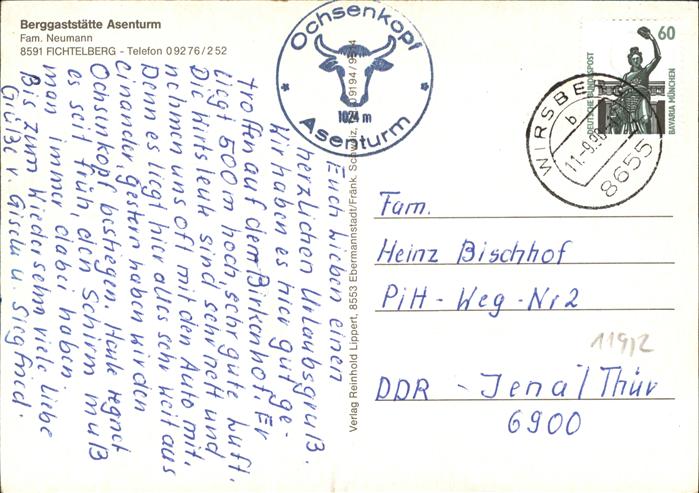 Berggaststätte Asenturm
Fam. Neumann
8591 FICHTELBERG - Telefon 0 92 76 / 2 52
Ochsenkopf
1024 m
Asenturm
60
DEUTSCHE BUNDESPOST
BAVARIA MÜNCHEN
WIRSBE
b
11.-9.90
8655
Euch lieben einen
herzlichen Urlaubsgruß.
Wir haben es hier gut ge-
troffen auf dem Birkenhof. Er
liegt 500m hoch, sehr gute Luft.
Die Wirtsleute sind sehr nett und
nehmen uns oft mit den Auto mit.
Denn es liegt hier alles sehr weit aus
einander, gestern haben wir den
Ochsenkopf bestiegen. Heute regnet
es seit früh, den Schirm muß
man immer dabei haben.
Bis zum Wiedersehn viele liebe
Grüße v. Gisela u. Siegfried.
Verlag Reinhold Lippert, 8553 Ebermannstadt/Fränk. Schweiz, 09194/
Fam.
Heinz Bischhof
Pitt-Weg-Nr 2
119/2
DDR - Jena/Thür
6900